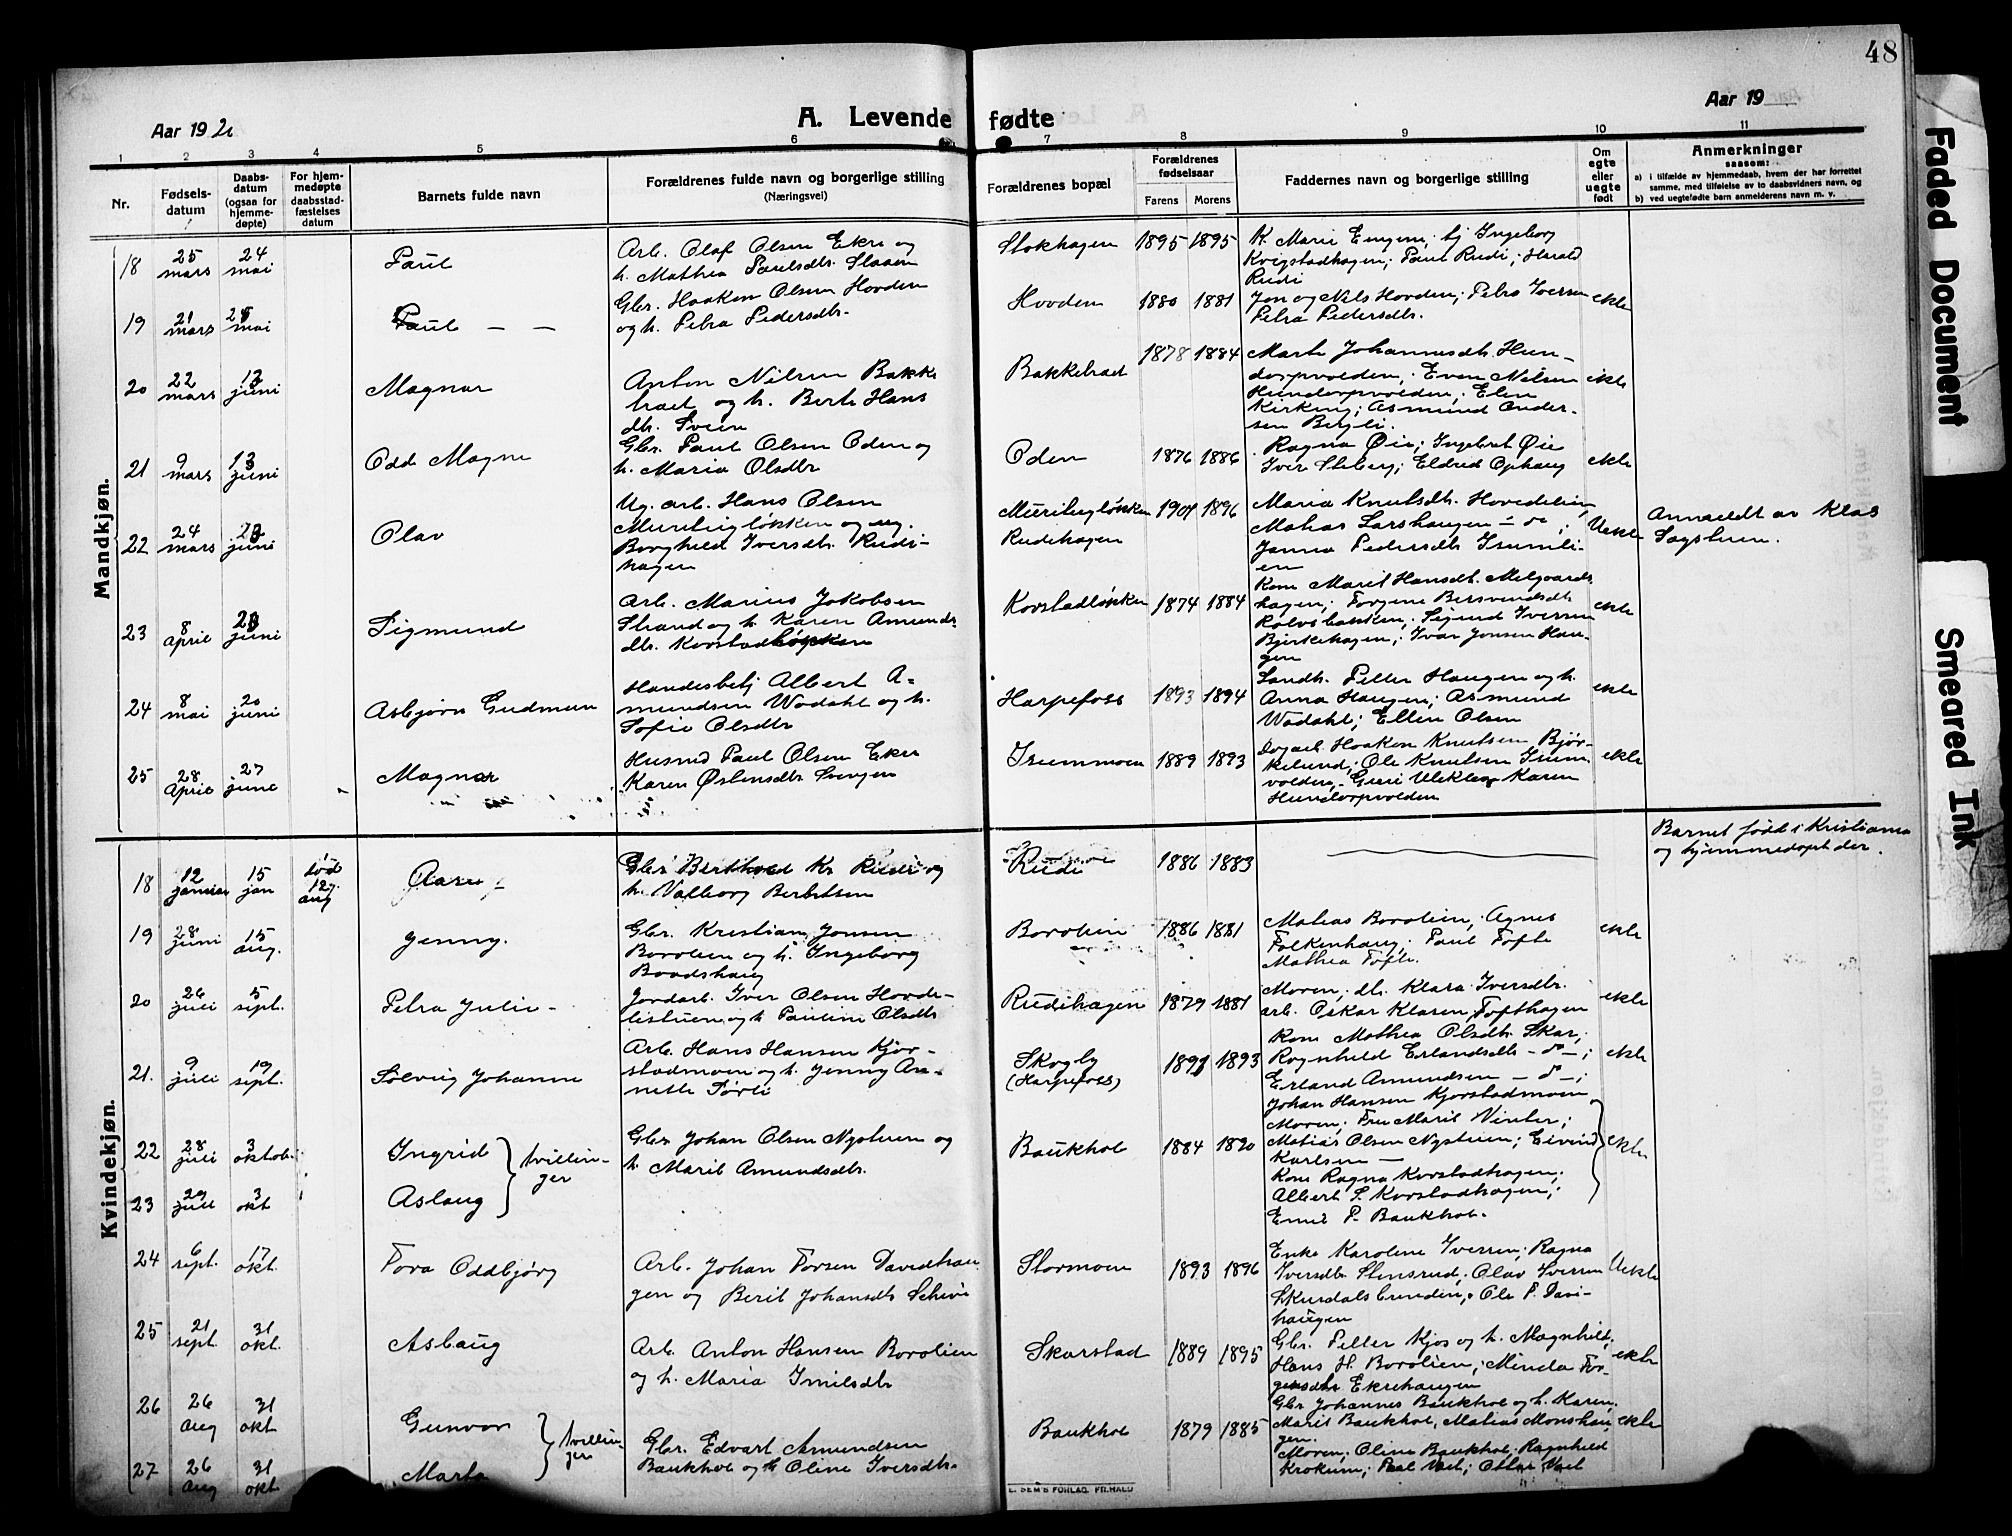 48
Aar 192
A. Levende fødte
Aar 19
1 2 3 4 5 6 7 8 9 10 11
Nr.
Fødsels-
datum
Daabs-
datum
(ogsaa for
hjemme-
døpte)
For hjem-
medøpte
daabsstad-
fæstelses
datum
Barnets fulde navn
Forældrenes fulde navn og borgerlige stilling
(Næringsvei)
Forældrenes bopæl
Forældrenes
fødselsaar
Farens Morens
Faddernes navn og borgerlige stilling
Om
egte
eller
uegte
født
Anmerkninger
saasom:
a) i tilfælde av hjemmedaab, hvem der har forrettet
samme, med tilføielse av to daabsvidners navn, og
b) ved uegtefødte barn anmelderens navn m. v.
Mandkjøn.
18 25 mars 24 mai Paul
Arb. Olaf Olsen Ekre og
h. Mathea Paulsdtr. Slaaen
Stokhagen 1895 1895
K. Marie Engene; tj Ingeborg
Kvigstadhagen; Paul Rudi; Harald
Rudi
19 21 mars mai Paul — —
Gbr. Haaken Olsen Hovden
og h. Petra Pedersdtr.
Hovden 1880 1881
Jon og Nils Hovden; Petra Iversen
Petra Pedersdtr.
ekte
20 22 mars juni Magnar
Anton Nilsen Bakke
bræt og h. Berte Hans
dtr. Sveen
Bakkebræt 1878 1884
Marte Johannesdtr. Hun-
dorpvolden; Even Nilsen
Hundorpvolden; Elen
Kirking; Asmund Ander-
sen Bergli.
ekte
21 9 mars 13 juni Odd Magne
Gbr. Paul Olsen Oden og
h. Maria Olsdtr
Oden 1876 1886
Ragna Øie; Ingebret Øie
Iver Sleberg; Eldrid Ophaug
ekte
22 24 mars juni Olav
Ug. arb. Hans Olsen
Muribugløkken og ug.
Borghild Iversdtr. Rudi-
hagen
Muribugløkken
Rudihagen
1901 1896
Maria Knutsdtr. Hovedelien
Matias Larshaugen
Janna Pedersdtr
en
Uekte
Anmeldt av Klas
Sagstuen.
23 8 april juni Sigmund
Arb. Marius Jakobsen
Strand og h. Karen Amunds
dtr. Korstadløkken
Korstadløkken 1874 1884
Kone Marit Hansdtr. Melgaards
hagen; Torgine Bersvendsdtr
Rolvsbakken; Sigurd Iversen
Bjirkehagen; Ivar Jonsen Hau-
gen
ekte
24 8 mai 20 juni Asbjørn Gudmun
Handesbetj Albert A-
mundsen Wadahl og h.
Sofie Olsdtr
Harpefoss 1893 1894
Landh. Petter Haugen og h.
Anna Haugen; Asmund
Wadahl; Ellen Olsen
ekte
25 28 april 27 june Magnar
Husmd Paul Olsen Ekre
Karen Østensdtr Svengen
Trummoen 1889 1893
Dagarb. Haaken Knutsen Bjør-
kelund; Ole Knutsen Trum
volden; Guri Ulekleiv Karen
Hundorpvolden
ekte
Kvindekjøn.
18 12 januar 15 jan død 12 aug Aase
Gbr Berthold Kr Rudi og
h. Valborg Berntsen
Rudi 1886 1883
Barnet født i Kristiania
og hjemmedøpt der.
19 28 juni 15 aug. Jenny.
Gbr. Kristian Jonsen
Borolien og h. Ingeborg
Baadshaug
Borolien 1886 1881
Matias Borolien; Agnes
Falkenhaug; Paul Tofte
Mathea Tofte.
ekte
20 26 juli 5 sept. Petra Julie
Jordarb. Iver Olsen Hovde-
listuen og h Pauline Olsdtr
Rudihagen 1879 1881
Moren; dtr. Klara Iversdtr.
arb. Oskar Klaren; Tofthagen
ekte
21. 9 juli 19 sept. Solveig Johanne
Arb. Hans Hansen Kjor-
stadmoen og h. Jenny An-
nette Sørli
Skogly
(Harpefoss)
1891 1893
Kone Mathea Olsdtr. Skar;
Ragnhild Erlandsdtr – d° – ;
Erland Amundsen – d° – ;
Johan Hansen Kjorstadmoen
ekte
22 28 juli 3 oktob. Ingrid
23 29 juli 3 okt Aslaug
tvillin-
ger
Gbr Johan Olsen Nystuen og
h. Marit Amundsdtr.
Baukhol 1884 1890
Moren; Fru Marit Vinter;
Matias Olsen Nystuen; Eivind
Karlsen —
Kone Ragna Korstadhagen;
Albert S. Korstadhagen;
Emil P. Baukhol.
ekte
24 6 sept. 17 okt. Tora Oddbjørg
Arb. Johan Torsen Davidhau
gen og Berit Johansdtr
Stormoen 1893 1896
Enke Karoline Iversen; Ragna
Iversdtr Stensrud; Olav Iversen
Skurdalsbunden; Ole P. Davi-
haugen
Uekte
25 21 sept. 31 okt. Aslaug
Arb. Anton Hansen Borolien
og h. Maria Emilsdtr
Skarstad 1889 1895
Gbr. Petter Kjos og h. Magnhild;
Hans H. Borolien; Minda Tor-
gersdtr Ekrehaugen
ekte
26 26 aug 31 okt. Gunvor
27 26 aug 31 okt Marta
tvillin-
ger
Gbr. Edvart Amundsen
Baukhol og h Oline Iversdtr.
Baukhol 1879 1885
Gbr Johannes Baukhol og h. Karen;
Marit Baukhol; Matias Monshau
gen.
Moren; Oline Baukhol; Ragnhild
Krokum; Paul Vaet; Ottar Vaet
ekte
E. SEM'S FORLAG, FR.HALD
Faded Document
Smeared Ink